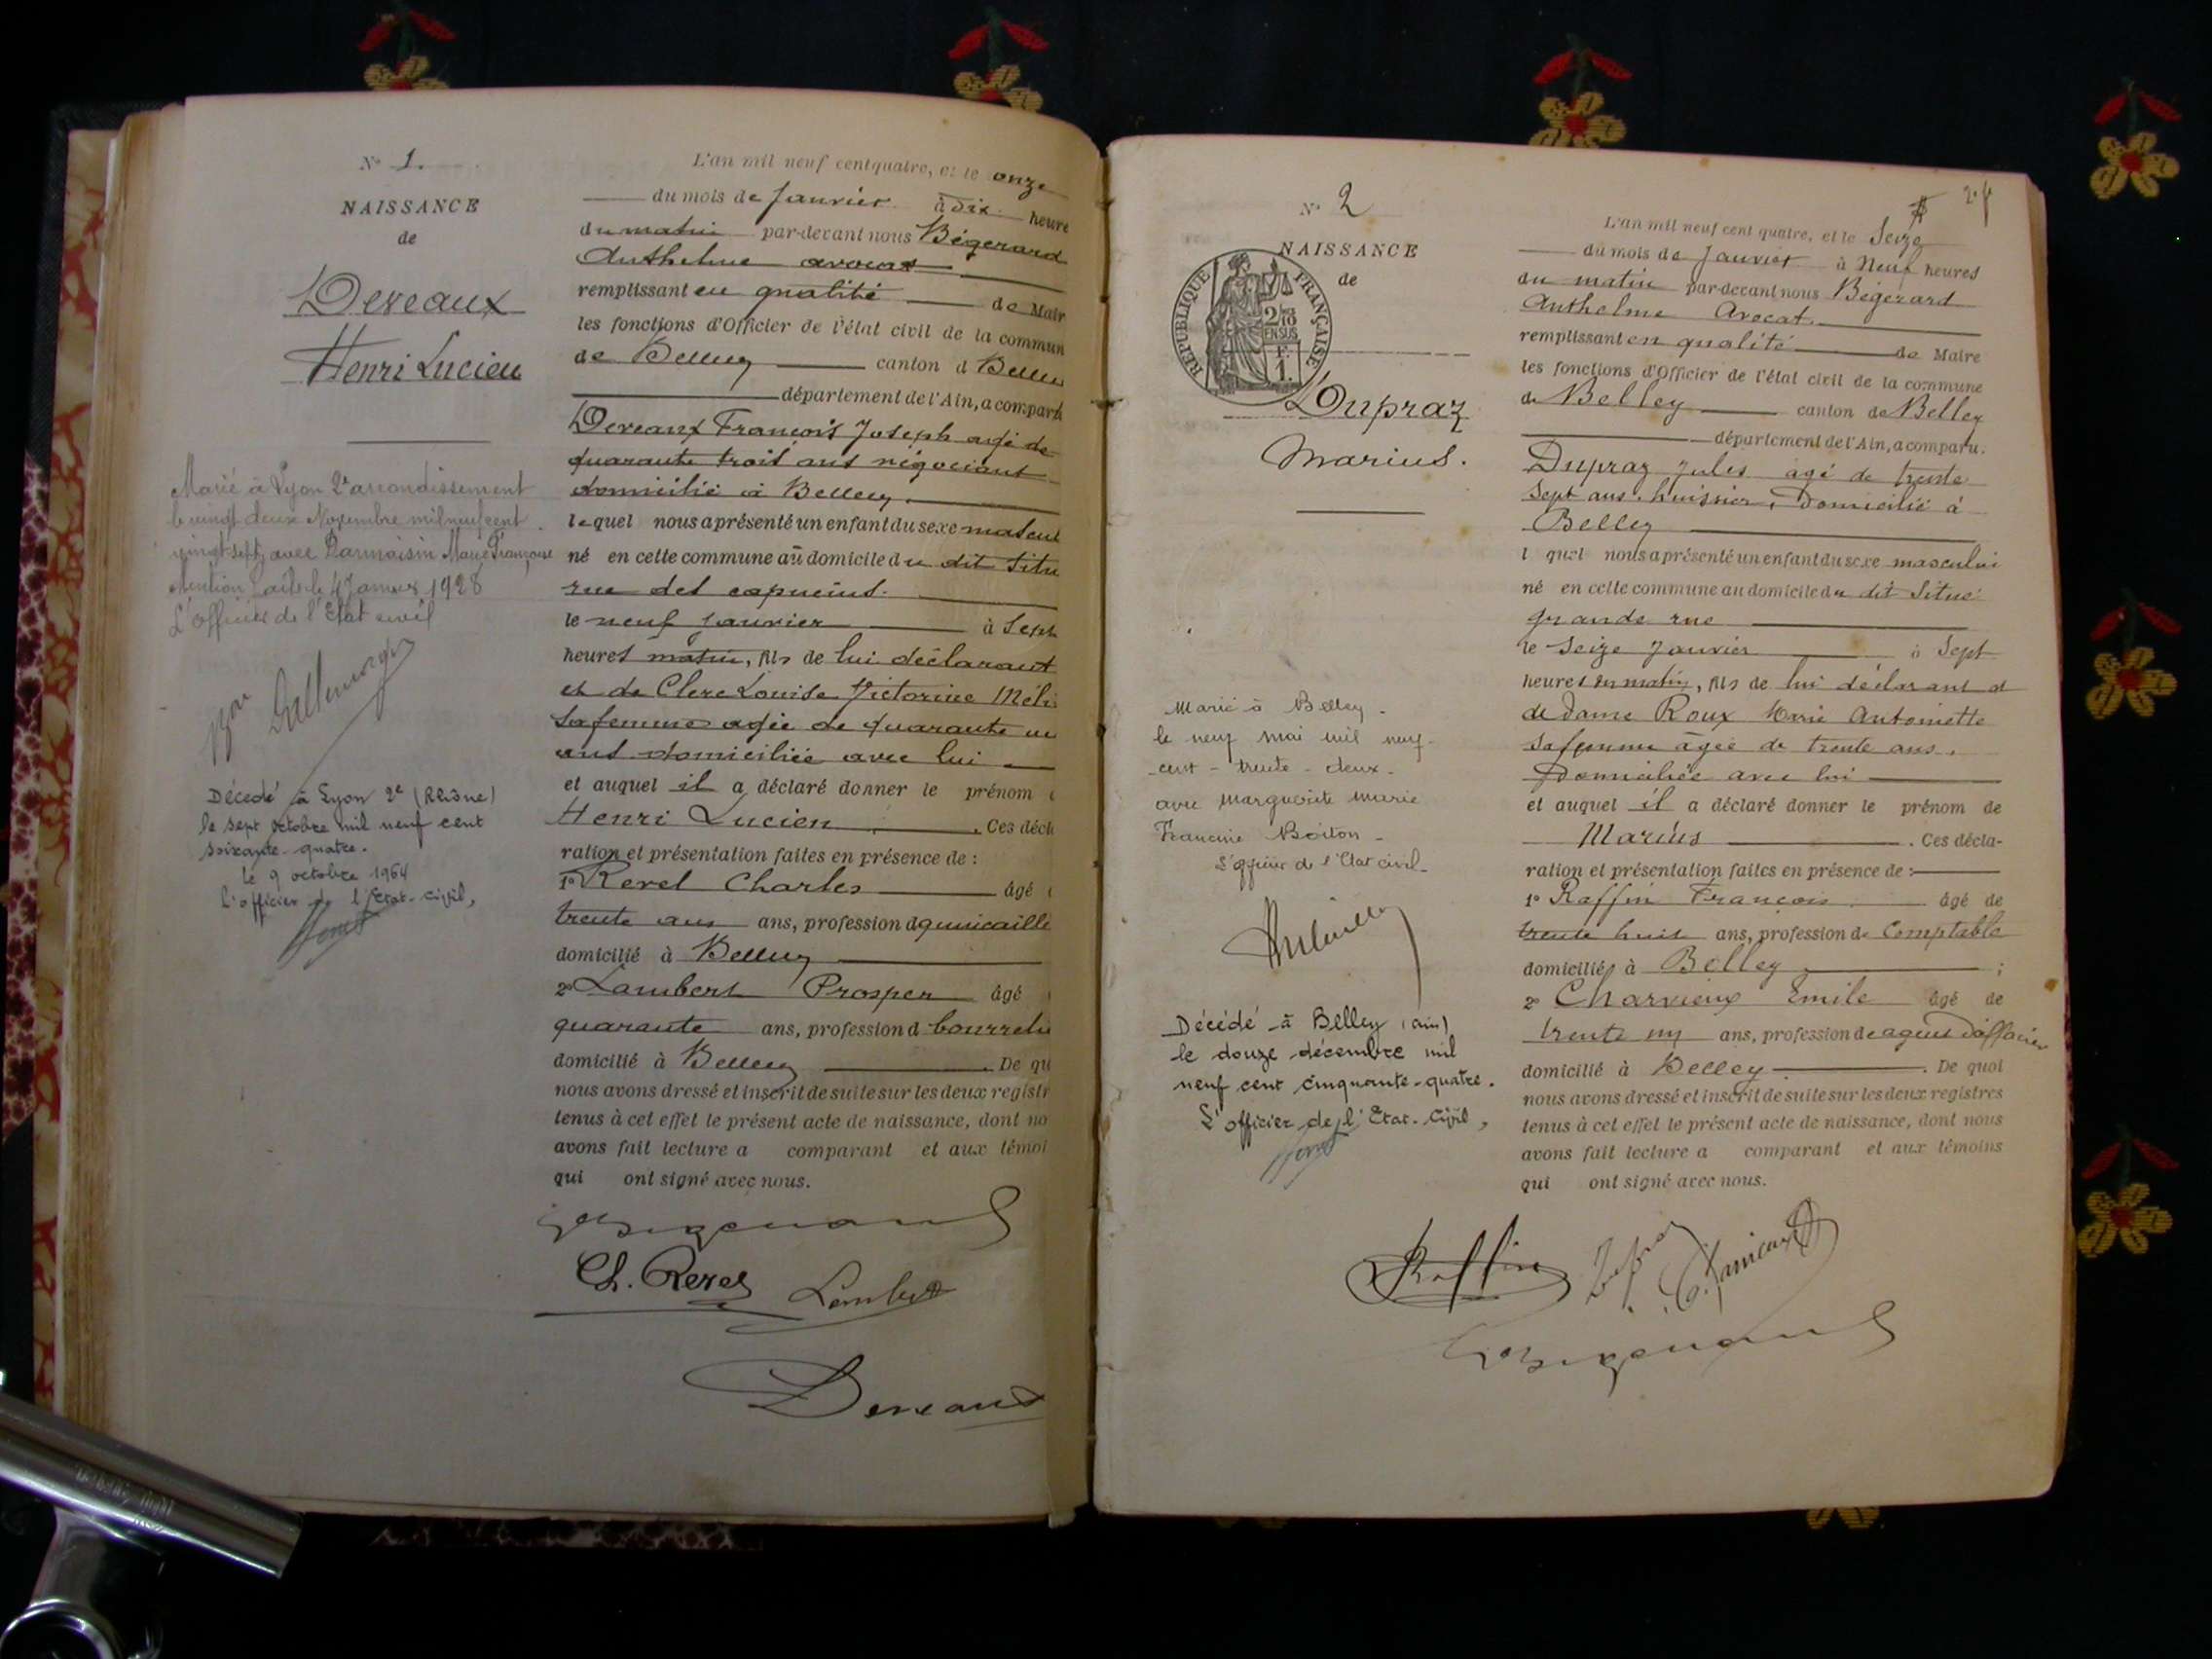 No 1.
NAISSANCE
de
Dereaux
Henri Lucien
Marié à Lyon 2e arrondissement
le vingt deux Novembre mil neuf cent
vingt-sept, avec Marie Françoise
Mention faite le 4 Janvier 1928
L'officier de l'Etat civil
Décédé à Lyon 2e (Rhône)
le sept octobre mil neuf cent
soixante-quatre.
le 9 octobre 1964
L'officier de l'Etat-Civil,
L'an mil neuf cent quatre, et le onze
du mois de Janvier à dix heure
du matin par-devant nous Bégerard
Anthelme avocat
remplissant en qualité de Mair
les fonctions d'Officier de l'état civil de la commun
de Belley canton d Belley
département de l'Ain, a comparu
Dereaux François Joseph agé de
quarante trois ans négociant
domicilié à Belley.
lequel nous a présenté un enfant du sexe mascul
né en cette commune au domicile du dit situ
rue des capucins.
le neuf janvier à Sept
heures matin, fils de lui déclarant
et de Clerc Louise Victorine Méli
sa femme agée de quarante
ans domiciliée avec lui
et auquel il a déclaré donner le prénom
Henri Lucien . Ces décla
ration et présentation faites en présence de :
1o Revel Charles âgé
trente ans, profession d quincaille
domicilié à Belley
2o Lambert Prosper âgé
quarante ans, profession d bourrelie
domicilié à Belley . De qu
nous avons dressé et inscrit de suite sur les deux registr
tenus à cet effet le présent acte de naissance, dont no
avons fait lecture a comparant et aux témoi
qui ont signé avec nous.
Ch. Revel Lambert
Dereaux
No 2
NAISSANCE
de
RÉPUBLIQUE FRANÇAISE
2/10
EN SUS
F.
1.
Dupraz
Marius.
Marié à Belley
le neuf mai mil neuf
cent - trente - deux
avec Marguerite Marie
Francine Boiton
L'officier de l'Etat civil
Décédé à Belley (Ain)
le douze décembre mil
neuf cent cinquante-quatre.
L'officier de l'Etat-Civil,
L'an mil neuf cent quatre, et le Seize
du mois de Janvier à Neuf heures
du matin par-devant nous Bégerard
Anthelme Avocat.
remplissant en qualité de Maire
les fonctions d'Officier de l'état civil de la commune
de Belley canton de Belley
département de l'Ain, a comparu.
Dupraz Jules agé de trente
sept ans. huissier, Domicilié à
Belley
l quel nous a présenté un enfant du sexe masculin
né en cette commune au domicile du dit situé
grande rue
le Seize Janvier à Sept
heures du matin, fils de lui déclarant et
de Dame Roux Marie Antoinette
sa femme âgée de trente ans.
Domiciliée avec lui
et auquel il a déclaré donner le prénom de
Marius . Ces décla-
ration et présentation faites en présence de :
1o Raffin François âgé de
trente huit ans, profession de Comptable
domicilié à Belley ;
2o Charvieux Emile âgé de
trente ans, profession de agent d'affaires
domicilié à Belley . De quoi
nous avons dressé et inscrit de suite sur les deux registres
tenus à cet effet le présent acte de naissance, dont nous
avons fait lecture a comparant et aux témoins
qui ont signé avec nous.
Raffin